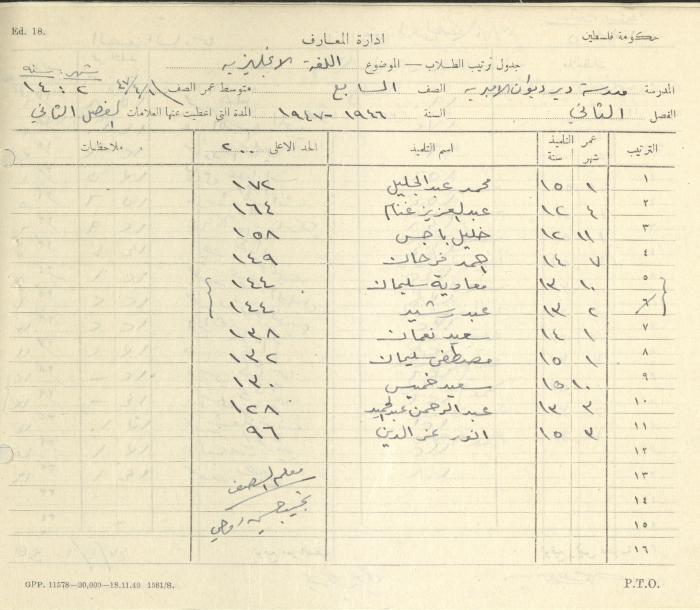 Ed. 18.
حكومة فلسطين
ادارة المعارف
جدول ترتيب الطلاب — الموضوع اللغة الانجليزيه
المدرسة مدرسة دير ديوان الاميريه الصف السابع متوسط عمر الصف ١/٤/٤٧ شهر: سنه ٢ : ١٤
الفصل الثاني السنة ١٩٤٦ - ١٩٤٧ المدة التي اعطيت عنها العلامات الفصل الثاني
الترتيب عمر التلميذ شهر سنة اسم التلميذ الحد الاعلى ٢٠٠ ملاحظات
١ ١ ١٥ محمد عبد الجليل ١٧٢
٢ ٤ ١٢ عبد العزيز غنام ١٦٤
٣ ١١ ١٢ خليل باجس ١٥٨
٤ ٧ ١٤ احمد فرحان ١٤٩
٥ ١٠ ١٣ معاوية سليمان ١٤٤
٦ ٢ ١٣ عبد رشيد ١٤٤
٧ ١ ١٤ سعيد نعمان ١٣٨
٨ ١ ١٥ مصطفى سليمان ١٣٢
٩ ١٠ سعيد خميس ١٣٠
١٠ ٣ ١٣ عبد الرحمن عبد المجيد ١٢٨
١١ ٣ ١٥ انور عز الدين ٩٦
١٢
١٣ معلم الصف
١٤
١٥
١٦
GPP. 11578—20,000—18.11.40 1581/S.
P.T.O.